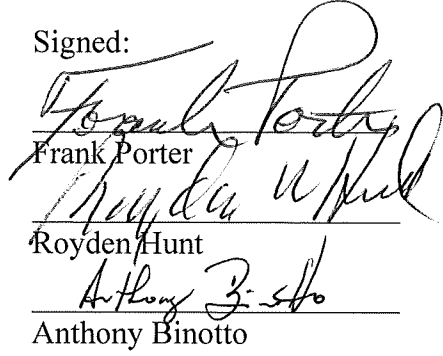 Signed:
Frank Porter
Frank Porter
Royden Hunt
Royden Hunt
Anthony Binotto
Anthony Binotto